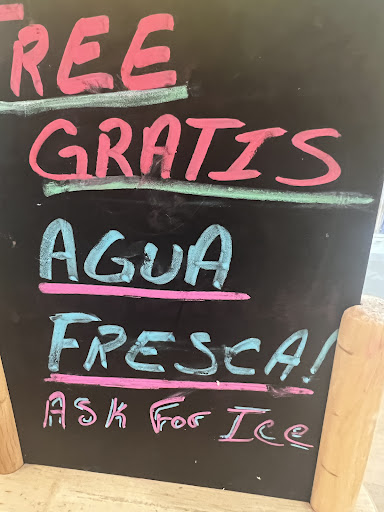 FREE
GRATIS
AGUA
FRESCA!
ASK FOR ICE